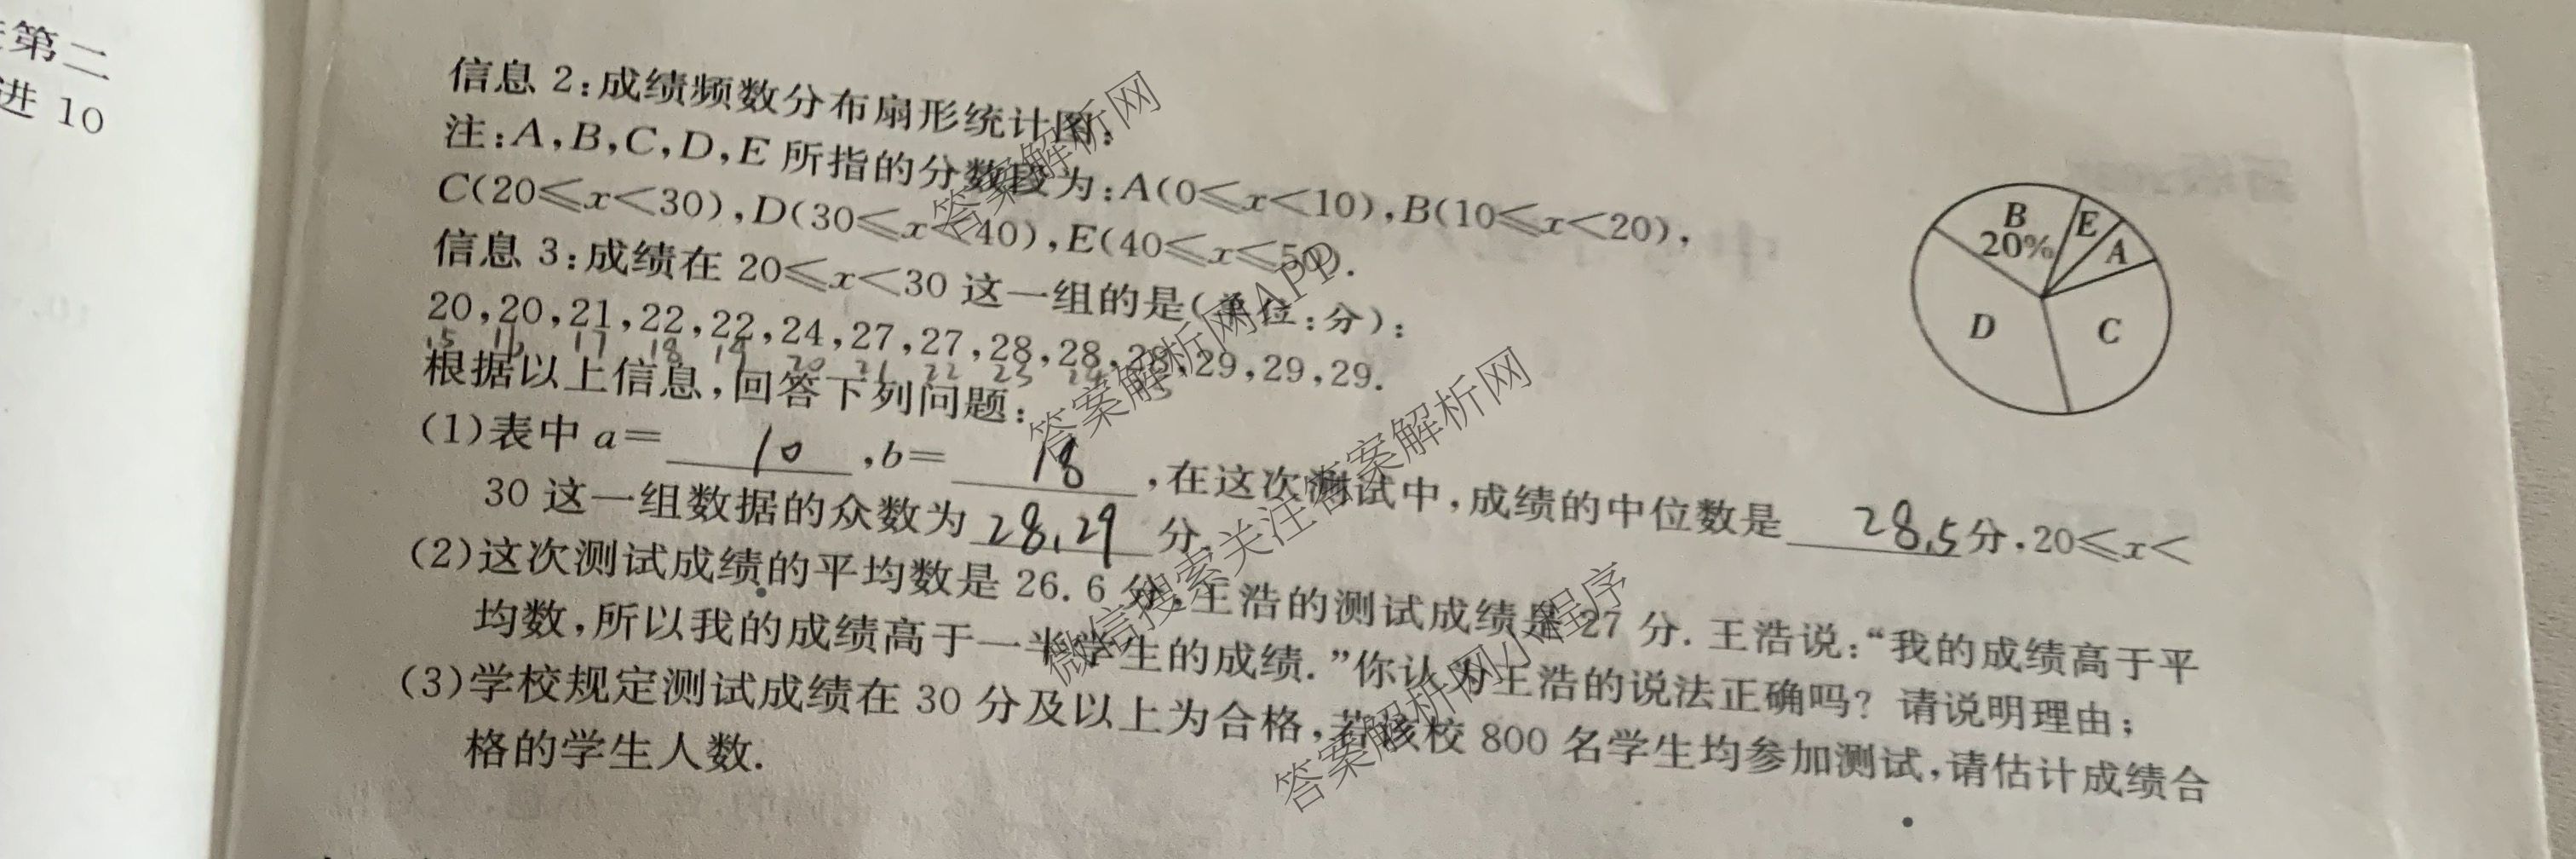 第二
进 10
信息 2:成绩频数分布扇形统计图:
注:A,B,C,D,E 所指的分数段为:A(0≤x<10),B(10≤x<20),
C(20≤x<30),D(30≤x<40),E(40≤x≤50).
信息 3:成绩在 20≤x<30 这一组的是(单位:分):
20,20,21,22,22,24,27,27,28,28,28,29,29,29.
15 16 17 18 19 20 21 22 23 24 25
根据以上信息,回答下列问题:
(1)表中 a= 10 ,b= 18 ,在这次测试中,成绩的中位数是 28.5 分,20≤x<
30 这一组数据的众数为 28,29 分.
(2)这次测试成绩的平均数是 26.6 分,王浩的测试成绩是 27 分.王浩说:“我的成绩高于平
均数,所以我的成绩高于一半学生的成绩.”你认为王浩的说法正确吗? 请说明理由;
(3)学校规定测试成绩在 30 分及以上为合格,若该校 800 名学生均参加测试,请估计成绩合
格的学生人数.
B
20%
E
A
D
C
答案解析网
答案解析网APP
微信搜索关注答案解析网
答案解析网小程序